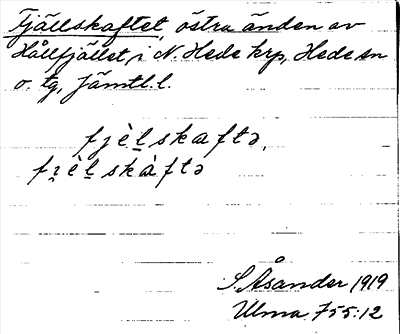 Fjällskaftet, östra änden av
Hållfjället i N. Hede krp, Hede sn
o. tg, Jämtl. l.
fjèḻskaftə,
fi̯èḻskàftə
S. Åsander 1919
Ulma 755:12